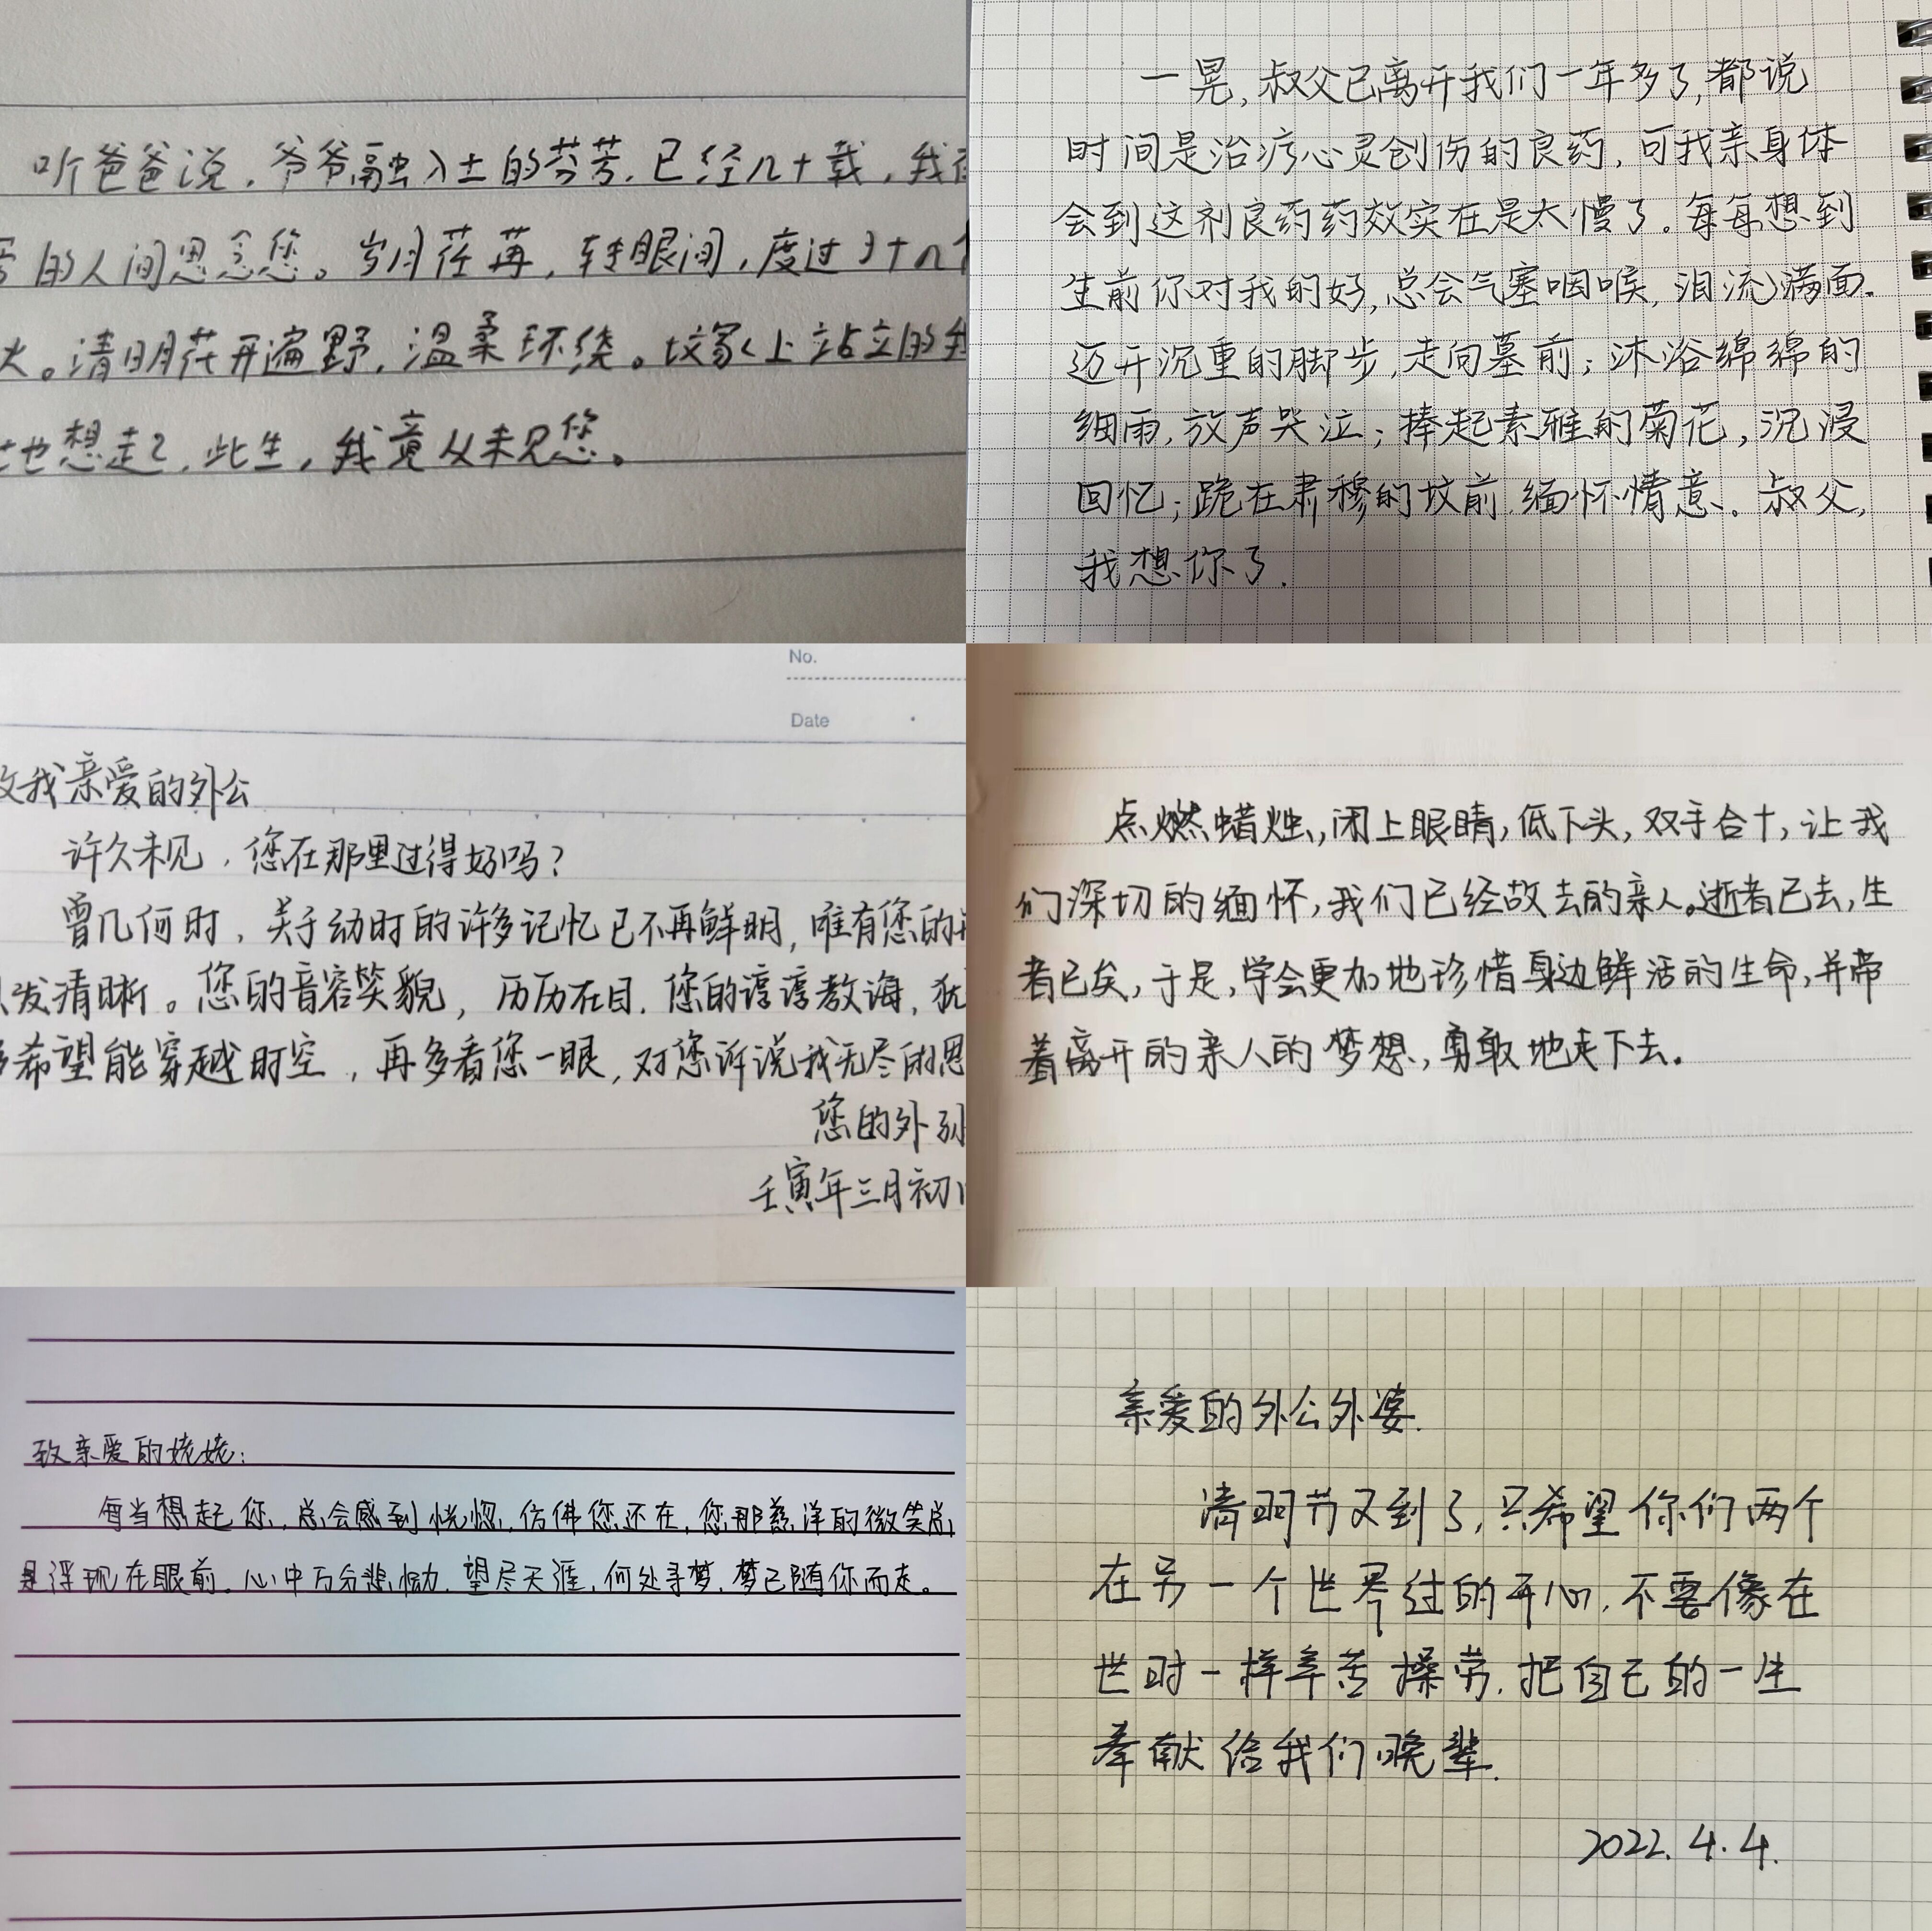 听爸爸说，爷爷融入土的芬芳，已经几十载，我
的人间思念您。岁月荏苒，转眼间，度过了十几
。清明花开遍野，温柔环绕。坟冢上站立的
地想起，此生，我竟从未见您。
一晃，叔父已离开我们一年多了，都说
时间是治疗心灵创伤的良药，可我亲身体
会到这剂良药药效实在是太慢了。每每想到
生前你对我的好，总会气塞咽喉，泪流满面。
迈开沉重的脚步，走向墓前；沐浴绵绵的
细雨，放声哭泣；捧起素雅的菊花，沉浸
回忆；跪在肃穆的坟前，缅怀情意。叔父，
我想你了.
No.
Date
我亲爱的外公
许久未见，您在那里过得好吗？
曾几何时，关于幼时的许多记忆已不再鲜明，唯有您的
发清晰。您的音容笑貌，历历在目，您的谆谆教诲，犹
希望能穿越时空，再多看您一眼，对您诉说我无尽的思
您的外孙
壬寅年三月初
点燃蜡烛，闭上眼睛，低下头，双手合十，让我
们深切的缅怀，我们已经故去的亲人。逝者已去，生
者已矣，于是，学会更加地珍惜身边鲜活的生命，并带
着离开的亲人的梦想，勇敢地走下去。
致亲爱的姥姥：
每当想起您，总会感到恍惚，仿佛您还在，您那慈祥的微笑总
是浮现在眼前。心中万分悲恸，望尽天涯，何处寻梦，梦已随你而走。
亲爱的外公外婆.
清明节又到了，只希望你们两个
在另一个世界过的开心，不要像在
世时一样辛苦操劳，把自己的一生
奉献给我们晚辈.
2022.4.4.